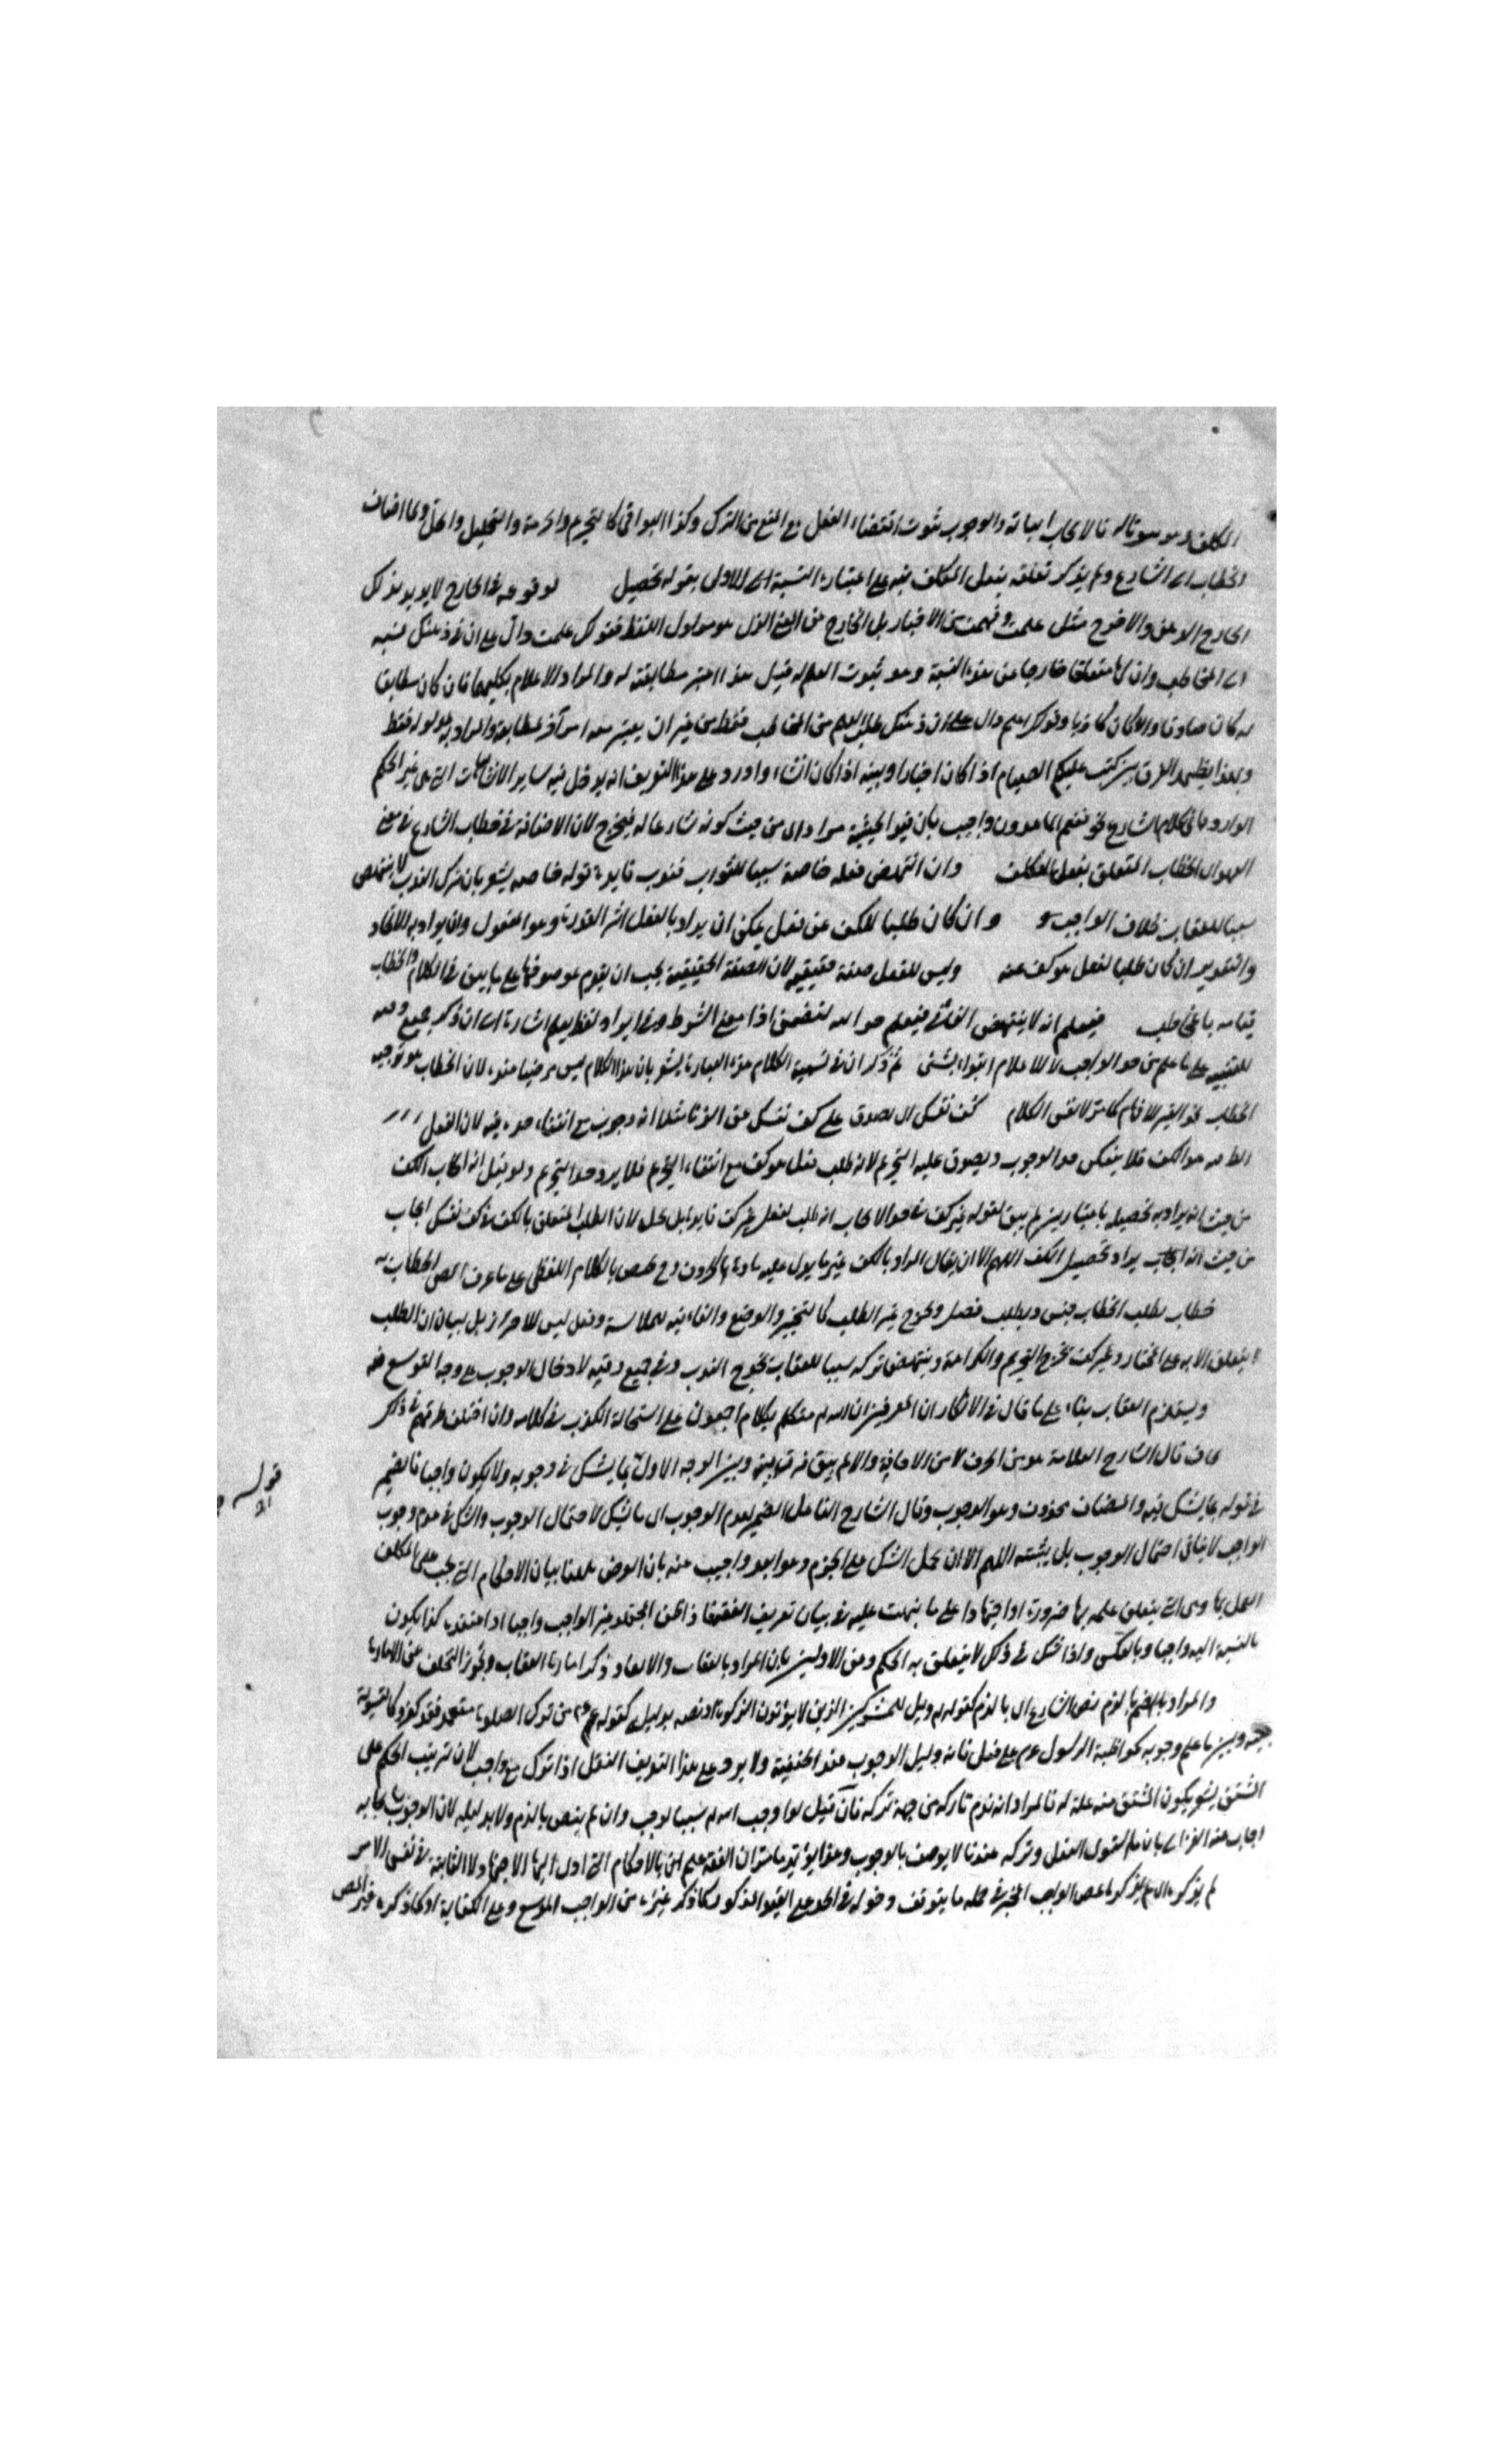 المكلف وهو سوتاله فالايجاب اثباته والوجوب ثبوت اقتضاء الفعل مع المنع من الترك وكذا البواقي كالتحريم والحرمة والتحليل والحل ولما اضاف
الخطاب الى الشارع ولم يذكر تعلقه بفعل المكلف نبه على اعتبار النسبة الى الاول بقوله تحصيل لوقوعه في الخارج لا يريد بذلك
الخارج مثل علمت وفهمت من الاخبار بل الخارج عن المعنى الذي هو مدلول اللفظ فقولك علمت دال على ان في ذهنك نسبة
الى المخاطب وان لها متعلقا خارجا من هذه النسبة وهو ثبوت العلم له قبل هذا اعتبر مطابقته له والمراد الاعلام بكليهما فان كان مطابقا
له كان صادقا والا كان كاذبا وقولك اعلم دال على ان في ذهنك طلب العلم من المخاطب فقط من غير ان يعتبر معه امر آخر لمطابقة والمراد به مدلوله فقط
وبهذا يظهر الفرق بين كتب عليكم الصيام اذا كان اخبارا وبينه اذا كان انشاء واورد على هذا التعريف انه يدخل فيه ساير الانشاءات التي هي غير الحكم
الوارد في كلام الشارع نحو فنعم الماهدون واجيب بان قيد الحيثية مراد اى من حيث كونه شارعا له فيخرج لان الاضافة في خطاب الشارع في معنى
العهد اى الخطاب المتعلق بفعل المكلف وان انتهض فعله خاصة سببا للثواب فندب فايدة قوله خاصة يشعر بان ترك الندب لا ينتهض
سببا للعقاب بخلاف الواجب وان كان طلبا للكف عن فعل يمكن ان يراد بالفعل اثر القدرة وهو المفعول وان يراد به الايجاد
والتقدير ان كان طلبا لفعل هو كف عنه وليس للفعل صفة حقيقية لان الصفة الحقيقية يجب ان يقوم بموصوفها على ما يبين في الكلام والخطاب
قيامه بالمخاطب فيعلم انه لا ينتهض اذا معنى الشرط وفي ايراد لفظ يعلم اشارة الى ان ذكر جميع
للتنبيه على ما علم من حد الواجب لا للاعلام ابتداء بشئ ثم ذكر ان في تسمية الكلام هذه العبارة يشعر بان هذا الكلام ليس مرضيا عنده لان الخطاب هو توجيه
الخطاب نحو الغير للافهام كما مر لا نفس الكلام كف نفسك اى يصدق على كف نفسك عن الزنا مثلا انه وجوب مع انتفاء حده فيه لان الفعل
هو الكف فلا ينعكس حد الوجوب ويصدق عليه التحريم لانه طلب فعل هو كف مع انتفاء التحريم فلا يرد حد التحريم ولو قيل انه ايجاب الكف
من حيث انه يراد به تحصيله باعتبارين لم يبق لقوله غير كف في حد الايجاب انه طلب لفعل غير كف فايدة بل يخل لان الطلب المتعلق بالكف في كف نفسك ايجاب
من حيث انه ايجاب يراد تحصيل الكف اللهم الا ان يقال المراد بالكف غير ما يدل عليه مادة الحروف وح يختص بالكلام اللفظي على ما عرف
خطاب بطلب الخطاب جنس وبطلب فصل ويخرج غير الطلب كالتخيير والوضع والفاء فيه للملابسة وفعل ليس للاحتراز بل لبيان ان الطلب
لا يتعلق الا به على المختار وغير كف يخرج التحريم والكراهة وينتهض تركه سببا للعقاب يخرج الندب وفي جميع وقته لادخال الوجوب على وجه التوسع فيه
ويستلزم العقاب بناء على ما قال في الابكار ان المعترفين ان الله متكلم بكلام اجمعوا على استحالة الكذب في كلامه وان اختلف طرقهم في ذكر
يخاف قال الشارح العلامة هو من الخوف لا من الاخافة والا لم يبق فرق بينه وبين الوجه الاول بما يشك في وجوبه ولا يكون واجبا فالضمير
في قوله بما يشك فيه والمضاف محذوف وهو الوجوب وقال الشارح الفاضل الضمير لعدم الوجوب اى ما شك لاحتمال الوجوب والشك في عدم وجوب
الواجب لا ينافى احتمال الوجوب بل يثبته اللهم الا ان يحمل الشك على الجزم وهو ابعد واجيب عنه بان الغرض هاهنا بيان الاحكام التي يجب على المكلف
العمل بها وهي التي يتعلق علمه بها ضرورة او اجتهادا على ما نبهت عليه في بيان تعريف الفقه فاذا ظن المجتهد غير الواجب واجبا او اعتقده كذا يكون
بالنسبة اليه واجبا وبالعكس واذا شك في ذلك لا يتعلق به الحكم وعن الاولين بان المراد بالعقاب والايعاد ذكر امارة العقاب ويجوز التخلف عن الامارة
والمراد بالذم نص الشارع اى بالذم كقوله ويل للمشركين الذين لا يؤتون الزكوة او نصه بدليل كقوله عم من ترك الصلوة متعمدا فقد كفر وكالتسوية
بينه وبين ما علم وجوبه كمواظبة الرسول عم على فعل فانه دليل الوجوب عند الحنفية ولا يرد على هذا التعريف النفل اذا ترك مع واجب لان ترتيب الحكم على
المشتق يشعر بكون المشتق منه علة له فالمراد انه ذم تاركه من جهة تركه فان قيل لو اوجب الله سببا لوجب وان لم ينص بالذم ولا بدليله لان الوجوب بايجابه
اجاب عنه الغزالي بان ما استوى الفعل وتركه عندنا لا يوصف بالوجوب وهذا يؤيد ما مر ان الفقه علم بالاحكام التي ادى اليها الاجتهاد لا الثابتة في نفس الامر
لم يذكره اى لم يذكر المص الواجب المخير في محله ما يتوقف دخوله في الحد على القيد المذكور كما ذكر غيره من الواجب الموسع وعلى الكفاية او كما ذكره غير المص
قوله